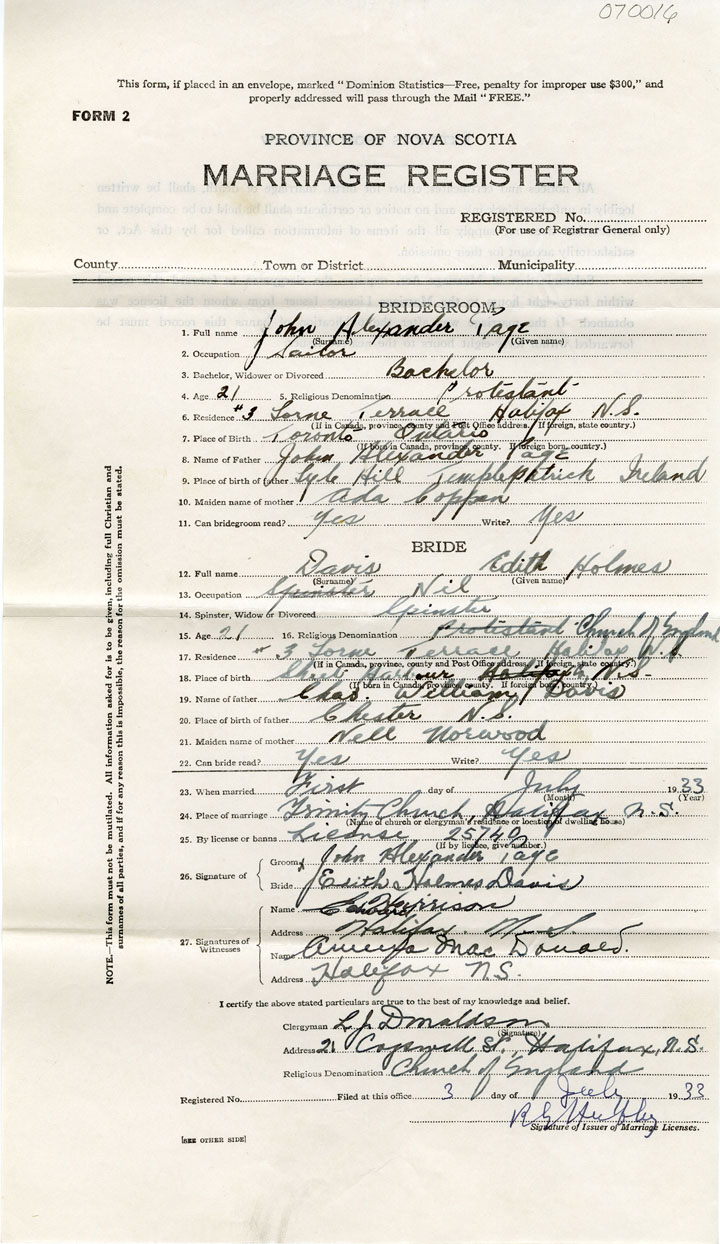 070016
This form, if placed in an envelope, marked "Dominion Statistics—Free, penalty for improper use $300," and
properly addressed will pass through the Mail "FREE."
FORM 2
PROVINCE OF NOVA SCOTIA
MARRIAGE REGISTER
REGISTERED No.
(For use of Registrar General only)
County Town or District Municipality
BRIDEGROOM
1. Full name John Alexander Page
(Surname) (Given name)
2. Occupation Sailor
3. Bachelor, Widower or Divorced Bachelor
4. Age 21 5. Religious Denomination Protestant
6. Residence #3 Lorne Terrace Halifax N.S.
(If in Canada, province, county and Post Office address. If foreign, state country.)
7. Place of Birth Toronto Ontario
(If born in Canada, province, county. If foreign born, country.)
8. Name of Father John Alexander Page
9. Place of birth of father Lyle Hill Templepatrick Ireland
10. Maiden name of mother Ada Coppan
11. Can bridegroom read? Yes Write? Yes
BRIDE
12. Full name Davis Edith Holmes
(Surname) (Given name)
13. Occupation Spinster Nil
14. Spinster, Widow or Divorced Spinster
15. Age 21 16. Religious Denomination Protestant Church of England
17. Residence #3 Lorne Terrace Halifax N.S.
(If in Canada, province, county and Post Office address. If foreign, state country.)
18. Place of birth Halifax N.S.
(If born in Canada, province, county. If foreign born, country.)
19. Name of father Chas. William Davis
20. Place of birth of father Chester N.S.
21. Maiden name of mother Nell Norwood
22. Can bride read? Yes Write? Yes
23. When married First day of July 1933
(Month) (Year)
24. Place of marriage Trinity Church, Halifax N.S.
(Name of church or clergyman's residence or locality of dwelling house)
25. By license or banns License 25740
(If by licence, give number.)
26. Signature of
Groom John Alexander Page
Bride Edith Holmes Davis
27. Signatures of Witnesses
Name Harrison
Address Halifax N.S.
Name MacDonald.
Address Halifax N.S.
I certify the above stated particulars are true to the best of my knowledge and belief.
Clergyman L.J. Donaldson
(Signature)
Address 21 Cogswell St., Halifax, N.S.
Religious Denomination Church of England
Registered No. Filed at this office 3 day of July 1933
Signature of Issuer of Marriage Licenses.
[SEE OTHER SIDE]
NOTE.—This form must not be mutilated. All information asked for is to be given, including full Christian and
surnames of all parties, and if for any reason this is impossible, the reason for the omission must be stated.